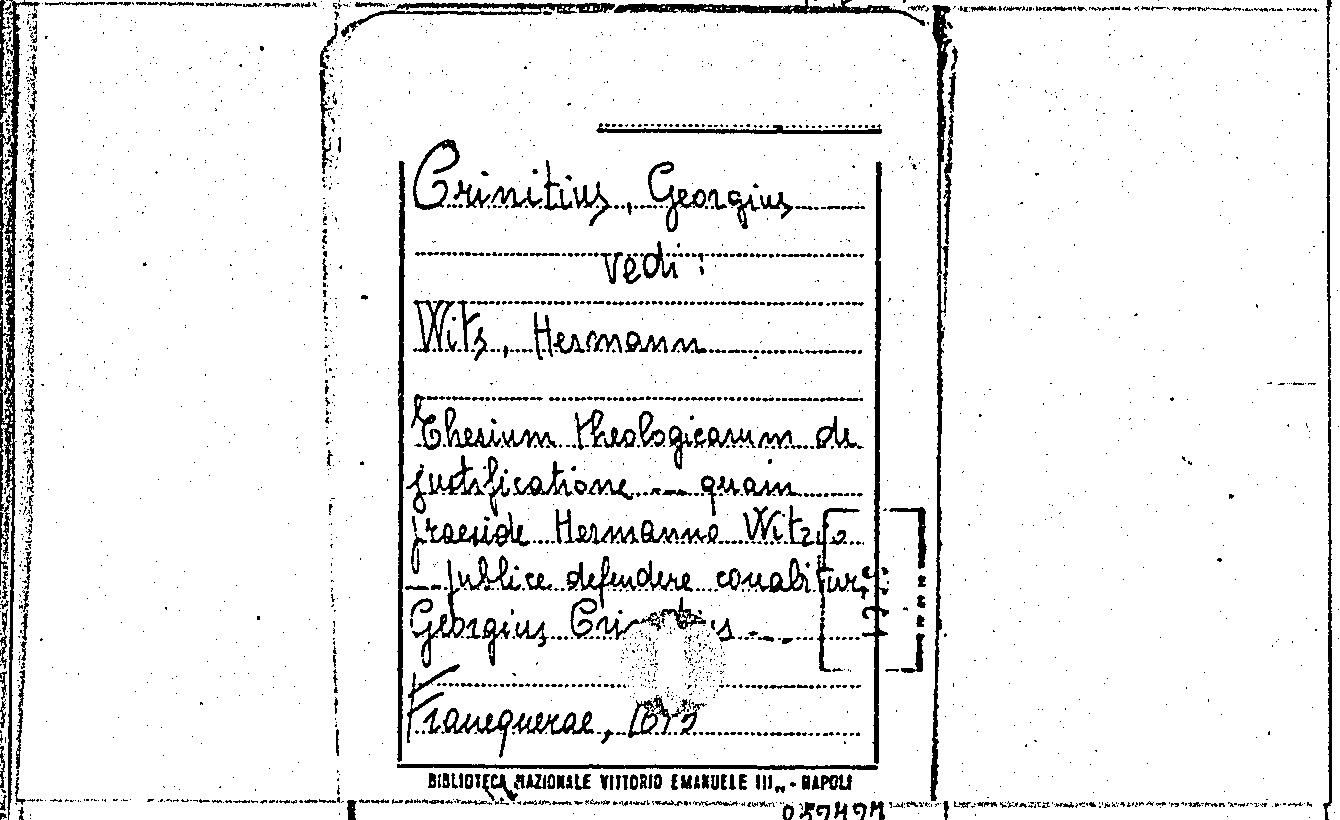 Crinitius, Georgius
vedi:
Wits, Hermann
Thesium theologicarum de
justificatione --- quam
praeside Hermanno Witzio
--- publice defendere conabitur
Georgius ---
Franequerae,
BIBLIOTECA NAZIONALE VITTORIO EMANUELE III„ - NAPOLI